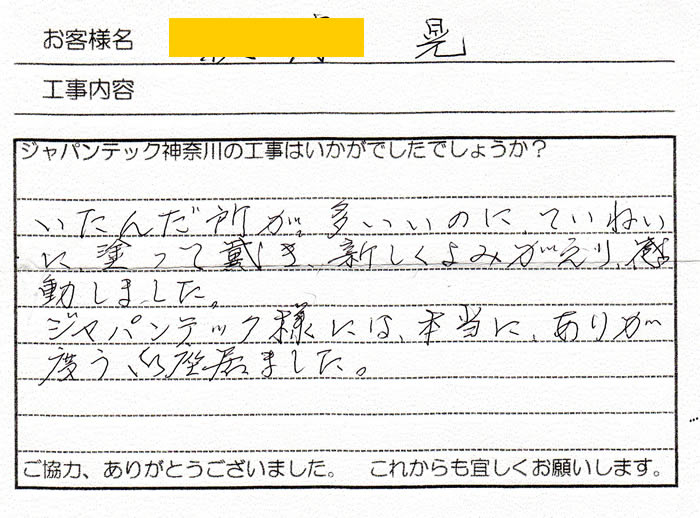 お客様名 晃
工事内容
ジャパンテック神奈川の工事はいかがでしたでしょうか？
いたんだ所が多いいのに、ていねい
に、塗って戴き、新しくよみがえり、感
動しました。
ジャパンテック様には、本当に、ありが
度う御座居ました。
ご協力、ありがとうございました。 これからも宜しくお願いします。